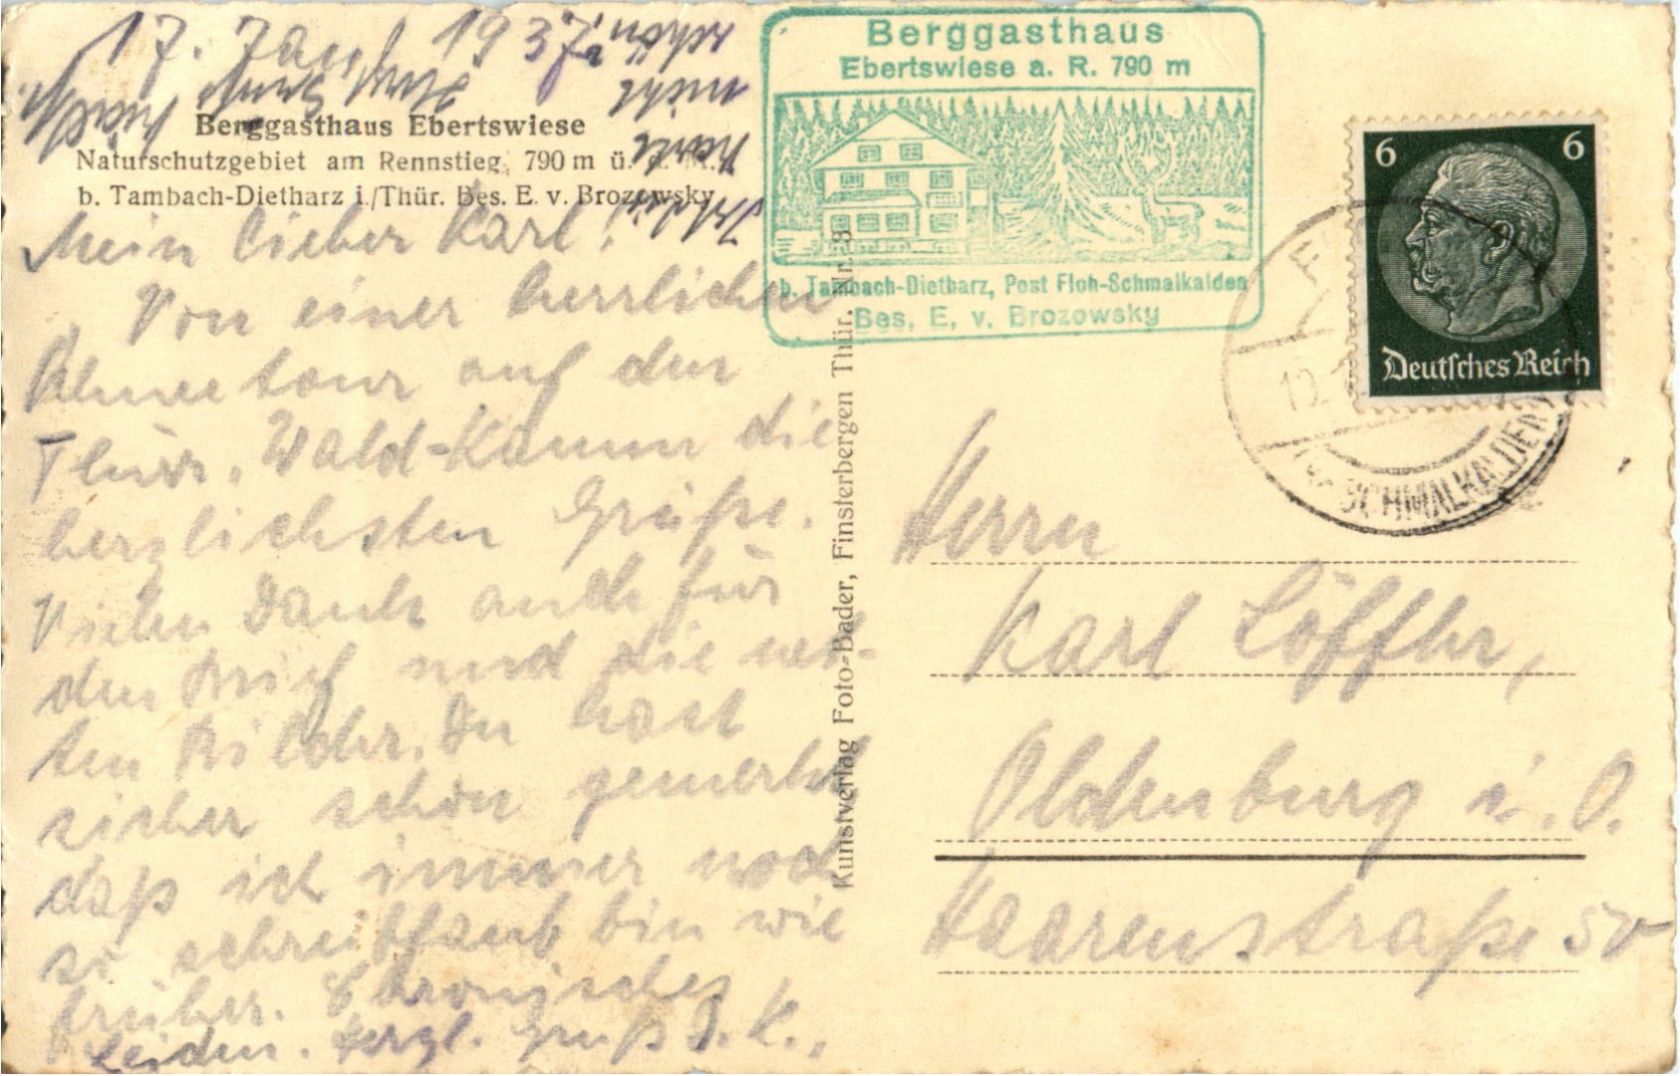 17. Jan. 1937.
Berggasthaus Ebertswiese
Naturschutzgebiet am Rennstieg, 790 m ü. d. M.
b. Tambach-Dietharz i./Thür. Bes. E. v. Brozowsky
Mein lieber Karl!
Von einer herrlichen
auf den
Thür. Wald-Kamm die
herzlichsten Grüße.
Vielen Dank auch für
den Brief und die net-
ten Bilder. Du hast
sicher schon gemerkt
daß ich immer noch
so schreibfaul bin wie
früher. Chronisches
Leiden. Herzl. Gruß J. K.,
schön
nicht
Berggasthaus
Ebertswiese a. R. 790 m
b. Tambach-Dietharz, Post Floh-Schmalkalden
Bes. E. v. Brozowsky
Kunstverlag Foto-Bader, Finsterbergen Thür. Nr. 8
6 6
Deutsches Reich
SCHMALKALDEN
Herrn
Karl Löffler,
Oldenburg i. O.
Haarenstraße 50